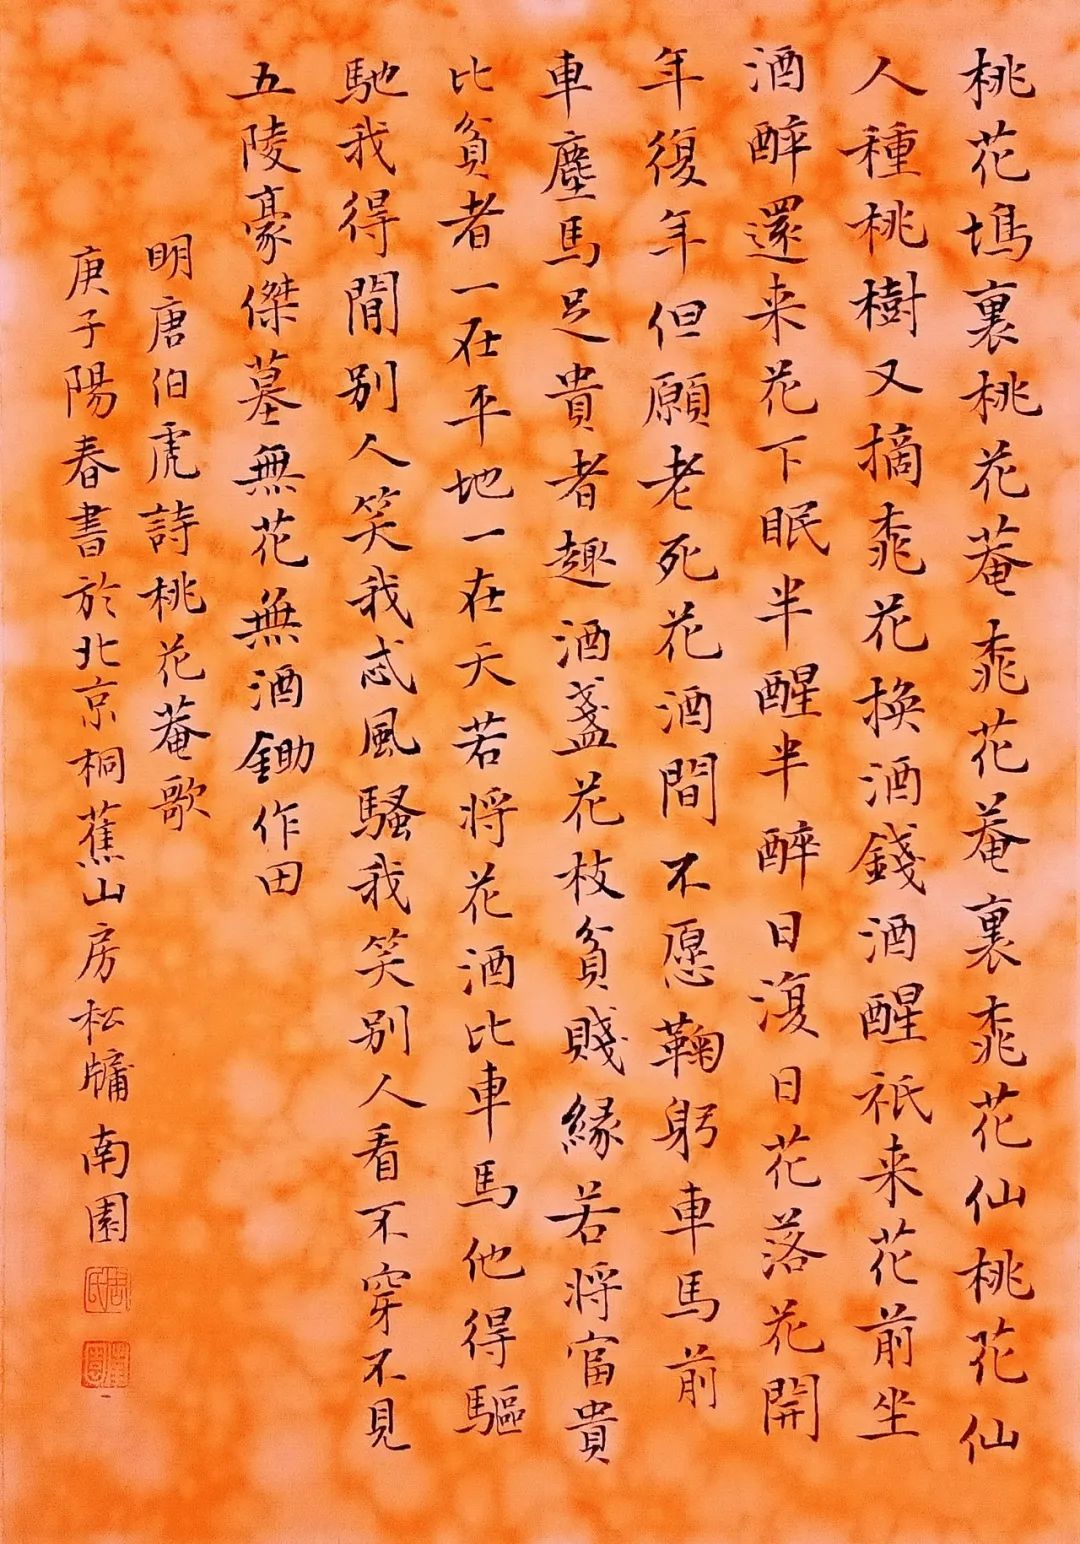 桃花塢裏桃花菴桃花菴裏桃花仙桃花仙
人種桃樹又摘桃花換酒錢酒醒祇来花前坐
酒醉還来花下眠半醒半醉日復日花落花開
年復年但願老死花酒間不愿鞠躬車馬前
車塵馬足貴者趣酒盞花枝貧賤緣若將富貴
比貧者一在平地一在天若將花酒比車馬他得驅
馳我得閒別人笑我忒風騷我笑別人看不穿不見
五陵豪傑墓無花無酒鋤作田
明唐伯虎詩桃花菴歌
庚子陽春書於北京桐蕉山房松牖南園